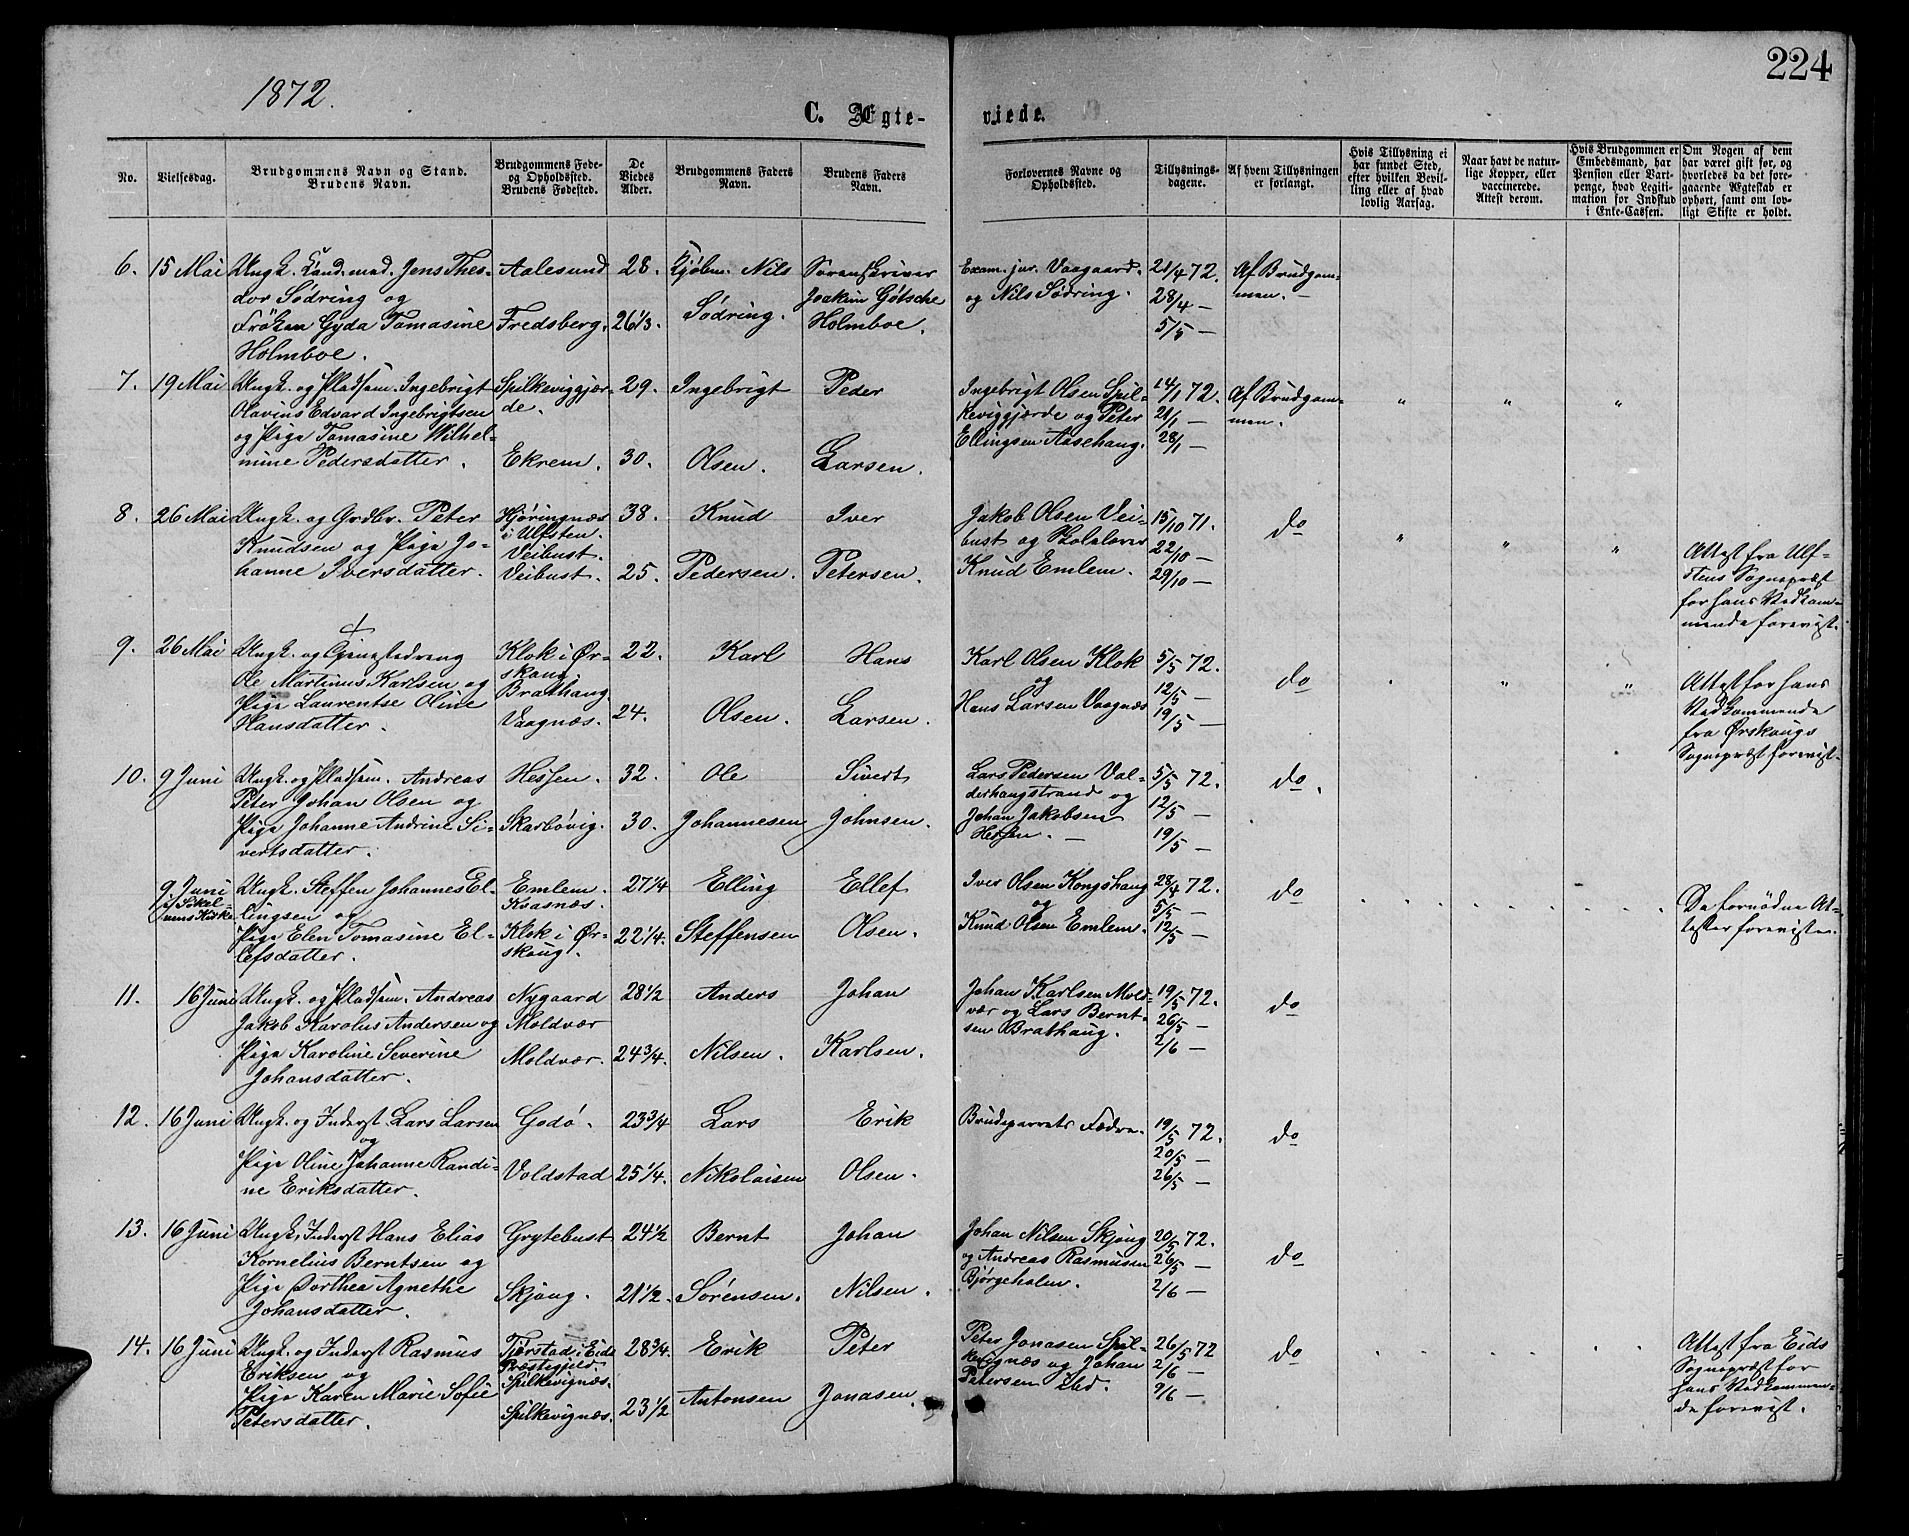 224
1872.
C. Ægte-
viede.
No.
Vielsesdag.
Brudgommens Navn og Stand.
Brudens Navn.
Brudgommens Føde-
og Opholdssted.
Brudens Fødested.
De
Viedes
Alder.
Brudgommens Faders
Navn.
Brudens Faders
Navn.
Forlovernes Navne og
Opholdssted.
Tillysnings-
dagene.
Af hvem Tillysningen
er forlangt.
Hvis Tillysning ei
har fundet Sted,
efter hvilken Bevil-
ling eller af hvad
lovlig Aarsag.
Naar havt de natur-
lige Kopper, eller
vaccinerede.
Attest derom.
Hvis Brudgommen er
Embedsmand, har
Pension eller Vart-
penge, hvad Legiti-
mation for Indskud
i Enke-Cassen.
Om Nogen af dem
har været gift før, og
hvorledes da det fore-
gaaende Ægteskab er
ophørt, samt om lov-
ligt Skifte er holdt.
6.
15 Mai
Ungk. Kand. med. Jens Theo-
dor Södring og
Fröken Gyda Tomasine
Holmboe.
Aalesund
Fredsberg.
28.
26 1/3.
Kjøbm. Nils
Södring.
Sorenskriver
Joakim Gøtsche
Holmboe.
Exam. jur. Vaagaard
og Nils Södring.
21/4 72.
28/4 —
5/5 —
Af Brudgom-
men. —
7.
19 Mai
Ungk. og Pladsm. Ingebrigt
Olavius Edvard Ingebrigtsen
og Pige Tomasine Wilhel-
mine Pedersdatter.
Spilkeviggjær-
de.
Ekrem.
29.
30.
Ingebrigt
Olsen.
Peder
Larsen.
Ingebrigt Olsen Spil-
keviggjærde og Peter
Ellingsen Aasehaug.
14/1 72.
21/1 —
28/1
Af Brudgom-
men.
" " "
8.
26 Mai
Ungk. og Grdbr. Peter
Knudsen og Pige Jo-
hanne Iversdatter.
Hjøringnæs
i Ulfsten.
Veibust.
Veibust.
38.
25.
Knud
Pedersen.
Iver
Petersen.
Jakob Olsen Vei-
bust og Skolelærer
Knud Emlem.
15/10 71.
22/10 —
29/10 —
do
" " "
Attest fra Ulf-
stens Sognepræst
for hans Vedkom-
mende forevist.
9.
26 Mai
Ungk. og Tjenestedreng
Ole Martinus Karlsen og
Pige Laurentse Oline
Hansdatter.
Klok i Ør-
skoug,
Brathaug
Vaagnæs.
22.
24.
Karl
Olsen.
Hans
Larsen.
Karl Olsen Klok
og
Hans Larsen Vaagnæs
5/5 72.
12/5 —
19/5 —
do
" "
Attest for hans
Vedkommende
fra Ørskougs
Sognepræst forevist.
10.
9 Juni
Ungk. og Pladsm. Andreas
Peter Johan Olsen og
Pige Johanne Andrine Si-
vertsdatter.
Hessen.
Skarbövig.
32.
30.
Ole
Johannesen
Sivert
Johnsen.
Lars Pedersen Val-
derhaugstrand og
Johan Jakobsen
Hessen. —
5/5 72.
12/5 —
19/5 —
do.
9 Juni
i Sökel-
vens Kirke
Ungk. Steffen Johannes El-
lingsen og
Pige Elen Tomasine El-
lefsdatter.
Emlem.
Kvasnæs.
Klok i Ør-
skoug.
27 1/4
22 1/4.
Elling
Steffensen
Ellef
Olsen.
Iver Olsen Kongshaug
og
Knud Olsen Emlem.
28/4 72.
5/5 —
12/5 —
do
De fornødne At-
tester foreviste.
11.
16 Juni
Ungk. og Pladsm. Andreas
Jakob Karolus Andersen og
Pige Karoline Severine
Johansdatter.
Nygaard
Moldvær
Moldvær.
28 1/2
24 3/4.
Anders
Nilsen.
Johan
Karlsen.
Johan Karlsen Mold-
vær og Lars Bernt-
sen Brathaug.
19/5 72.
26/5 —
2/6 —
do
12.
16 Juni
Ungk. og Inderst Lars Larsen
og
Pige Oline Johanne Randi-
ne Eriksdatter.
Godö.
Voldstad
23 3/4
25 1/4.
Lars
Nikolaisen
Erik
Olsen.
Brudeparrets Fædre.
19/5 72.
20/5 —
26/5 —
do
13.
16 Juni
Ungk. Inderst Hans Elias
Kornelius Berntsen og
Pige Dorthea Agnethe
Johansdatter.
Grytebust
Skjong.
24 1/2
21 1/2.
Bernt
Sörensen.
Johan
Nilsen.
Johan Nilsen Skjong
og Andreas Rasmusen
Bjørgeholen.
20/5 72.
26/5 —
2/6 —
do
14.
16 Juni
Ungk. og Inderst Rasmus
Eriksen og
Pige Karen Marie Sofie
Petersdatter.
Tjørstad i Eids
Præstegjeld.
Spilkevignæs.
Spilkevignæs.
28 3/4.
23 1/2
Erik
Antonsen
Peter
Jonasen.
Peter Jonasen Spil-
kevignæs og Johan
Petersen ibd.
26/5 72
2/6 —
9/6 —
do
Attest fra Eids
Sognepræst for
hans Vedkommen-
de forevist.